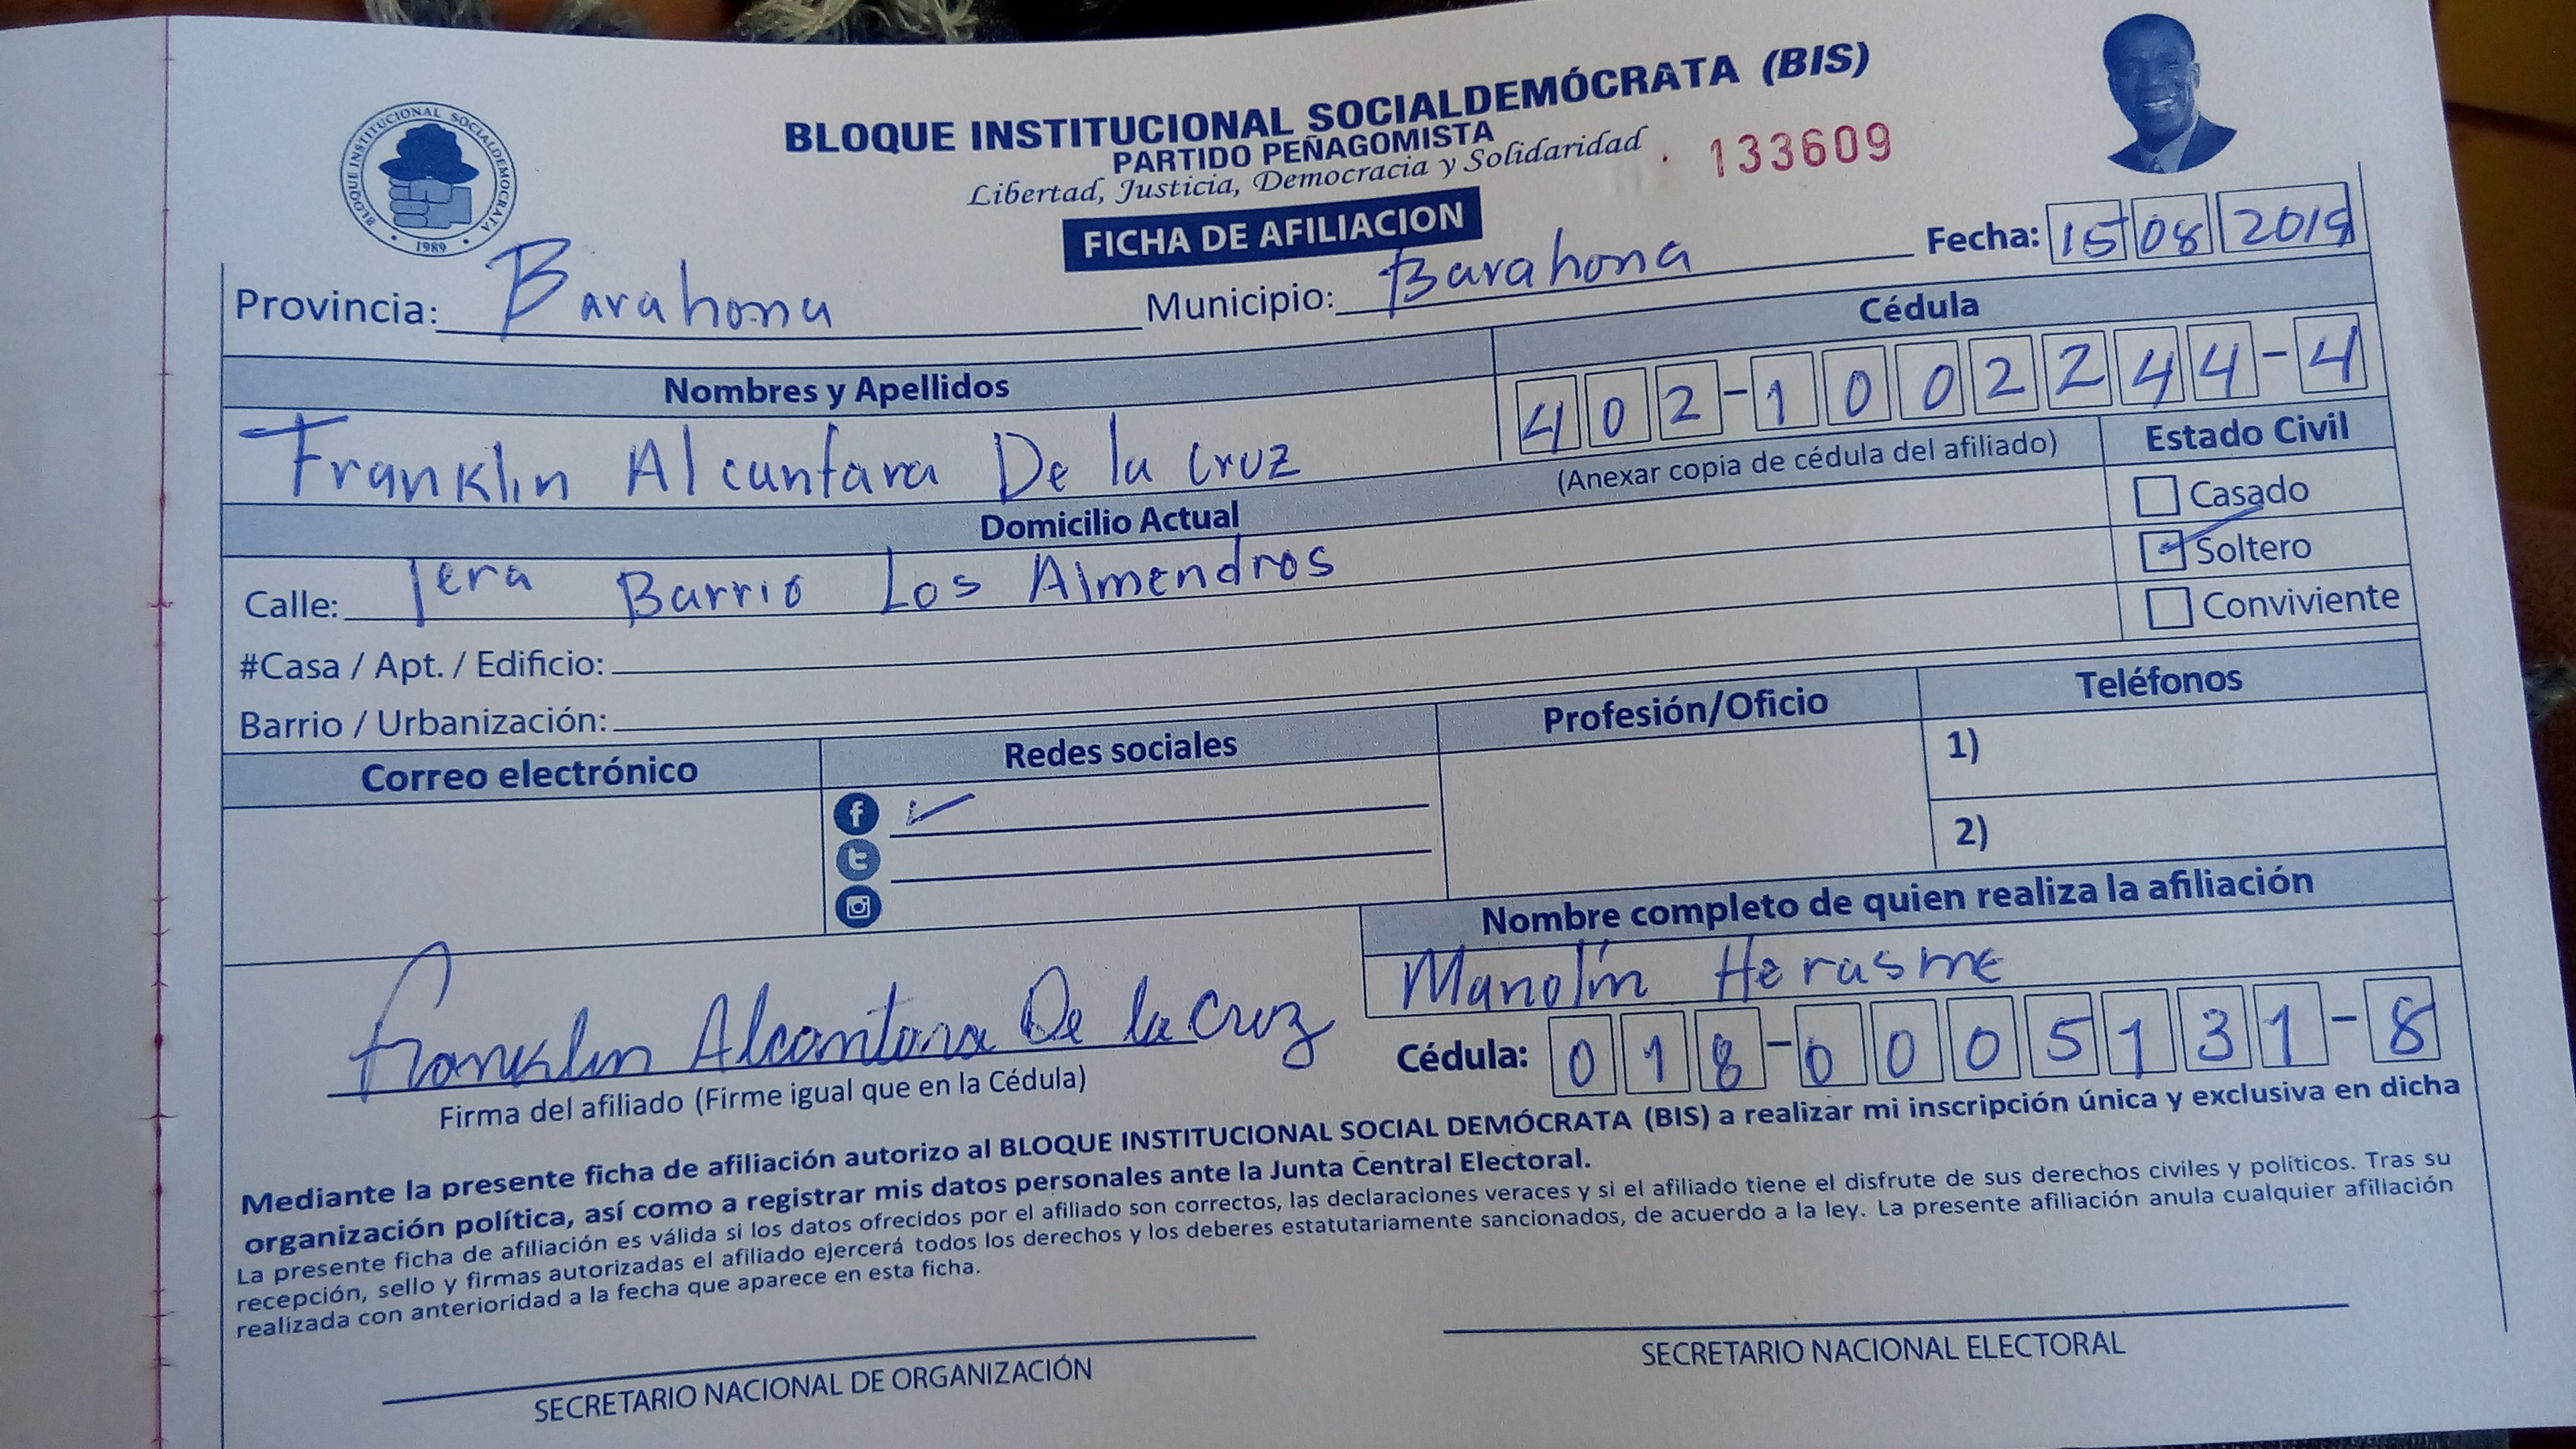 BLOQUE INSTITUCIONAL SOCIALDEMOCRATA
1989
BLOQUE INSTITUCIONAL SOCIALDEMÓCRATA (BIS)
PARTIDO PEÑAGOMISTA
Libertad, Justicia, Democracia y Solidaridad
133609
FICHA DE AFILIACION
Fecha: 15 08 2019
Provincia: Barahona Municipio: Barahona
Nombres y Apellidos Cédula
Franklin Alcantara De la Cruz 402-1002244-4
(Anexar copia de cédula del afiliado)
Estado Civil
Casado
Soltero
Conviviente
Domicilio Actual
Calle: 1era Barrio Los Almendros
#Casa / Apt. / Edificio:
Barrio / Urbanización:
Correo electrónico Redes sociales Profesión/Oficio Teléfonos
1)
2)
Nombre completo de quien realiza la afiliación
Manolín Herasme
Franklin Alcantara De la Cruz
Cédula: 018-0005131-8
Firma del afiliado (Firme igual que en la Cédula)
Mediante la presente ficha de afiliación autorizo al BLOQUE INSTITUCIONAL SOCIAL DEMÓCRATA (BIS) a realizar mi inscripción única y exclusiva en dicha
organización política, así como a registrar mis datos personales ante la Junta Central Electoral.
La presente ficha de afiliación es válida si los datos ofrecidos por el afiliado son correctos, las declaraciones veraces y si el afiliado tiene el disfrute de sus derechos civiles y políticos. Tras su
recepción, sello y firmas autorizadas el afiliado ejercerá todos los derechos y los deberes estatutariamente sancionados, de acuerdo a la ley. La presente afiliación anula cualquier afiliación
realizada con anterioridad a la fecha que aparece en esta ficha.
SECRETARIO NACIONAL DE ORGANIZACIÓN
SECRETARIO NACIONAL ELECTORAL